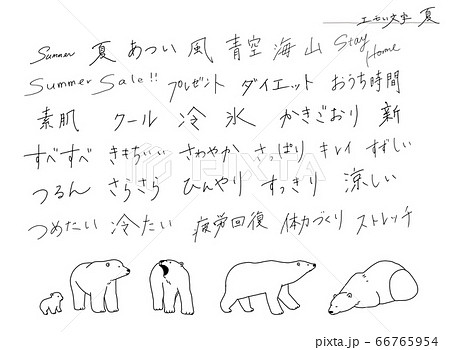 エモい文字 夏
Summer 夏 あつい 風 青空 海 山 Stay Home
Summer Sale!! プレゼント ダイエット おうち時間
素肌 クール 冷 氷 かきごおり 新
すべすべ きもちいい さわやか さっぱり キレイ すずしい
つるん さらさら ひんやり すっきり 涼しい
つめたい 冷たい 疲労回復 体力づくり ストレッチ
PIXTA
pixta.jp - 66765954